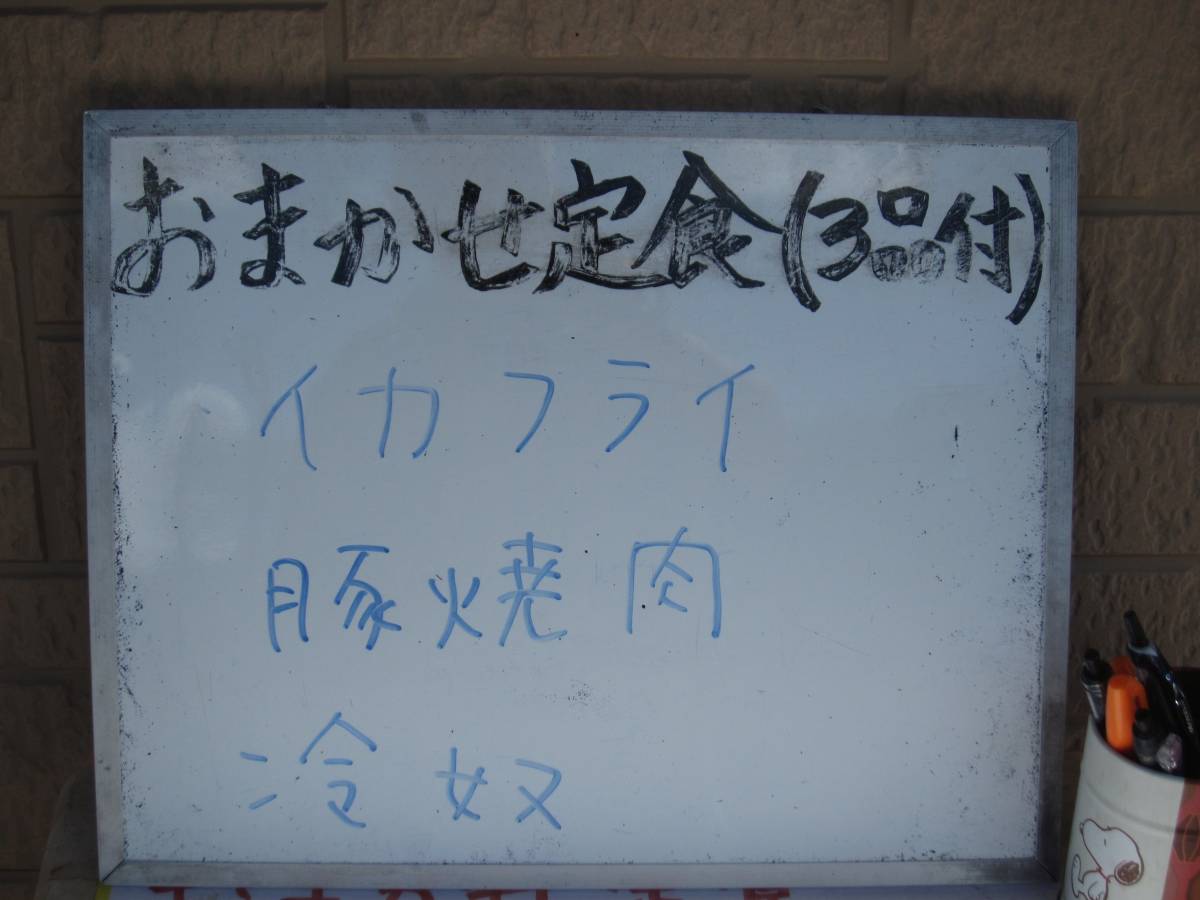 おまかせ定食(3品付)
イカフライ
豚焼肉
冷奴